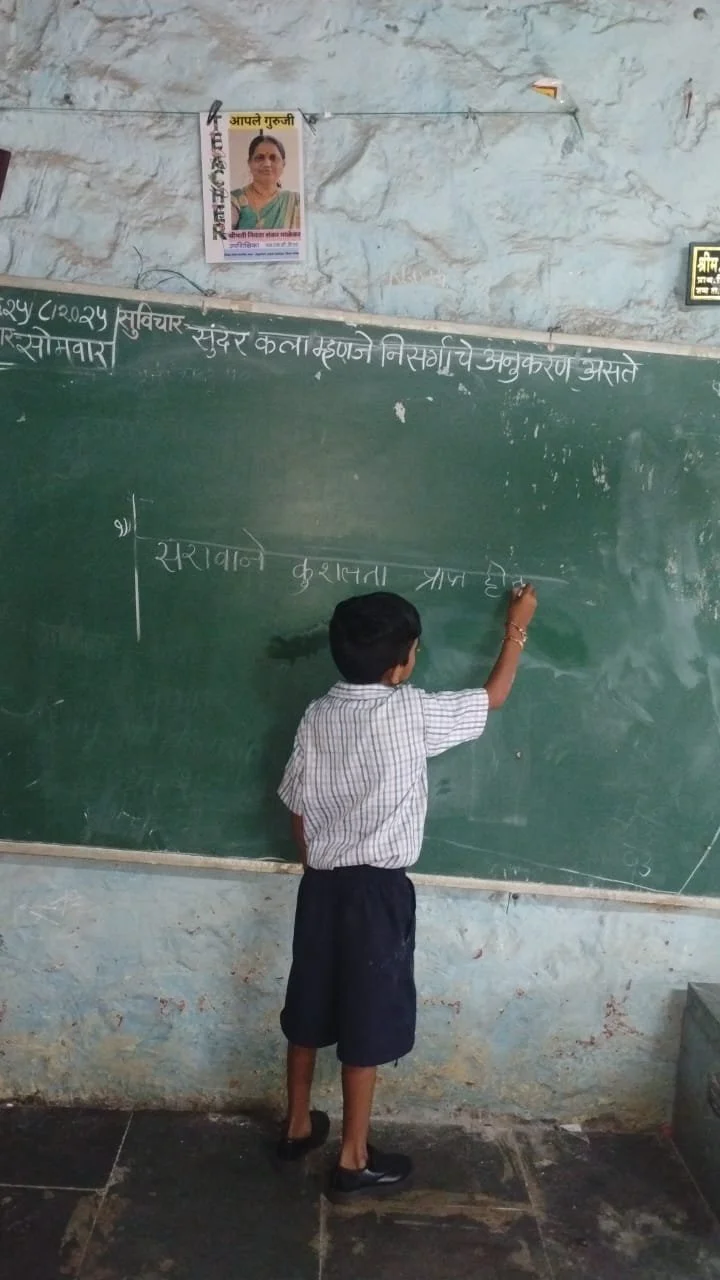 आपले गुरुजी
TEACHER
श्रीमती
उपशिक्षिका
श्रीम.
२५/८/२०२५
सुविचार
सोमवार
सुंदर कला म्हणजे निसर्गाचे अनुकरण असते
१)
सरावाने कुशलता प्राप्त हो